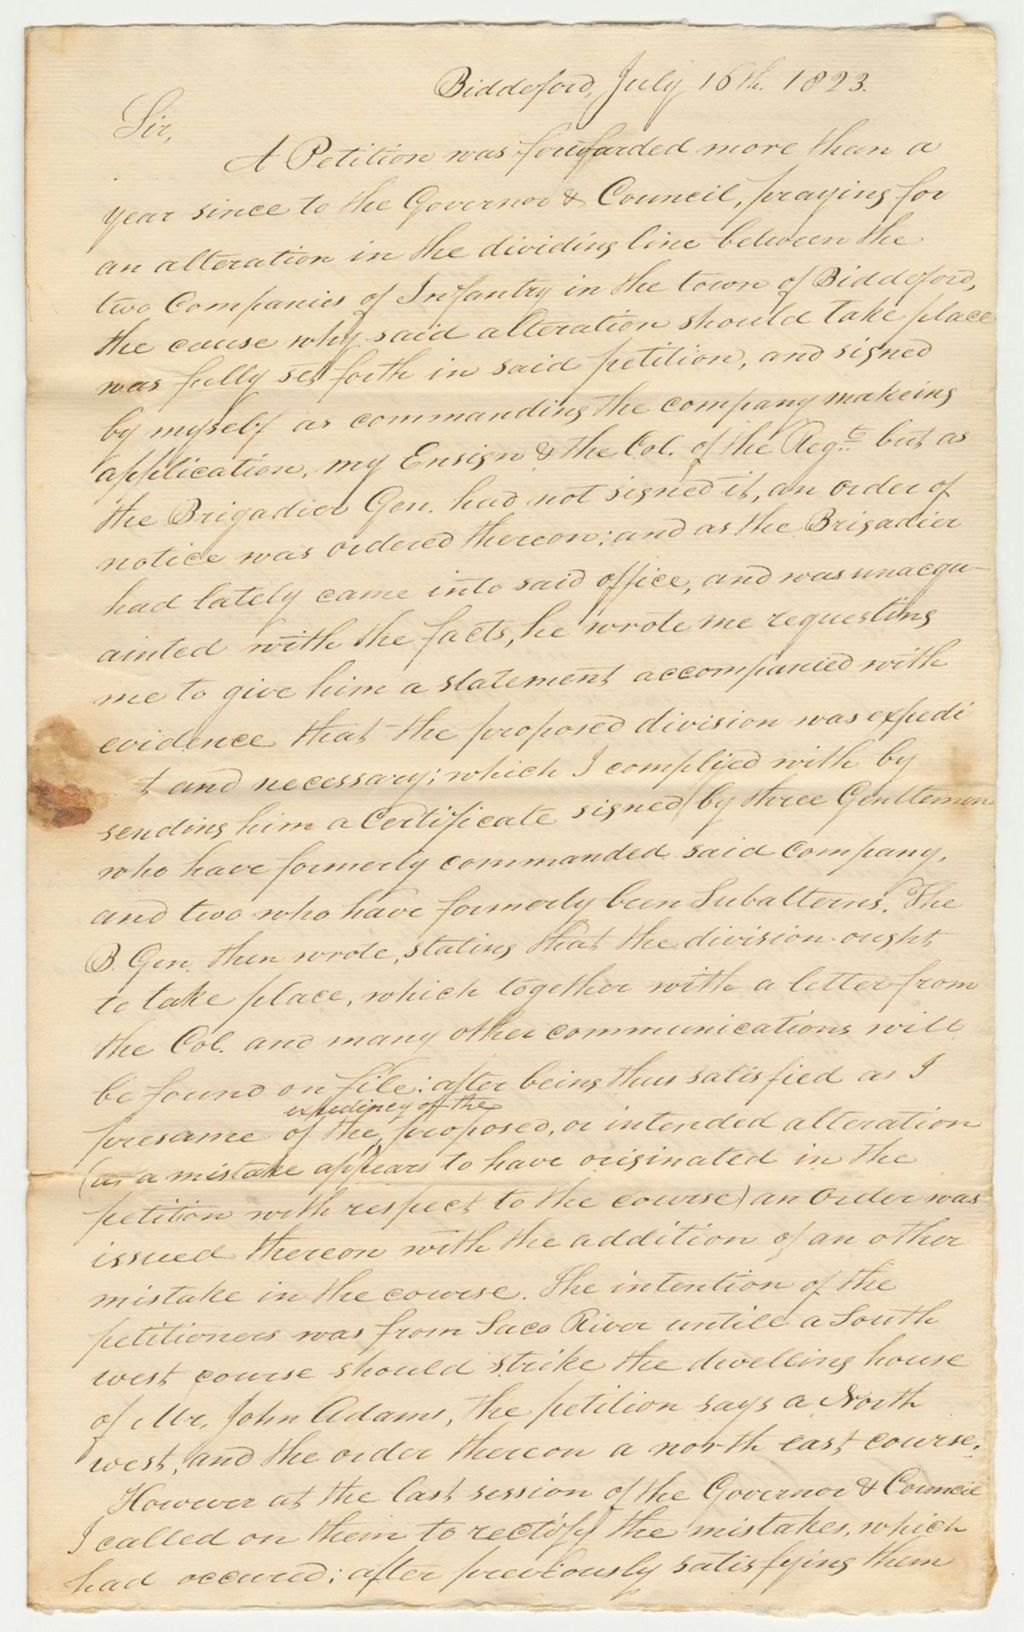 Biddeford, July 16th. 1823.
Sir,
A Petition was forwarded more than a
year since to the Governor & Council, praying for
an alteration in the dividing line between the
two Companies of Infantry in the town of Biddeford,
the cause why said alteration should take place
was fully set forth in said petition, and signed
by myself as commanding the company makeing
application, my Ensign & the Col. of the Regt. but as
the Brigadier Gen. had not signed it, an order of
notice was ordered thereon; and as the Brigadier
had lately came into said office, and was unacqu-
ainted with the facts, he wrote me requesting
me to give him a statement accompanied with
evidence that the proposed division was expedi
t and necessary; which I complied with by
sending him a Certificate signed by three Gentlemen
who have formerly commanded said company,
and two who have formerly been Subalterns. The
B. Gen. then wrote, stating that the division ought
to take place, which together with a letter from
the Col. and many other communications will
be found on file: after being thus satisfied as I
expediency of the
presame of the, proposed, or intended alteration
(as a mistake appears to have originated in the
petition with respect to the course) an Order was
issued thereon with the addition of an other
mistake in the course. The intention of the
petitioners was from Saco River untill a South
west course should strike the dwelling house
of Mr. John Adams, the petition says a North
west, and the order thereon a north east course.
However at the last session of the Governor & Council
I called on them to rectify the mistakes, which
had occured; after previously satisfying them